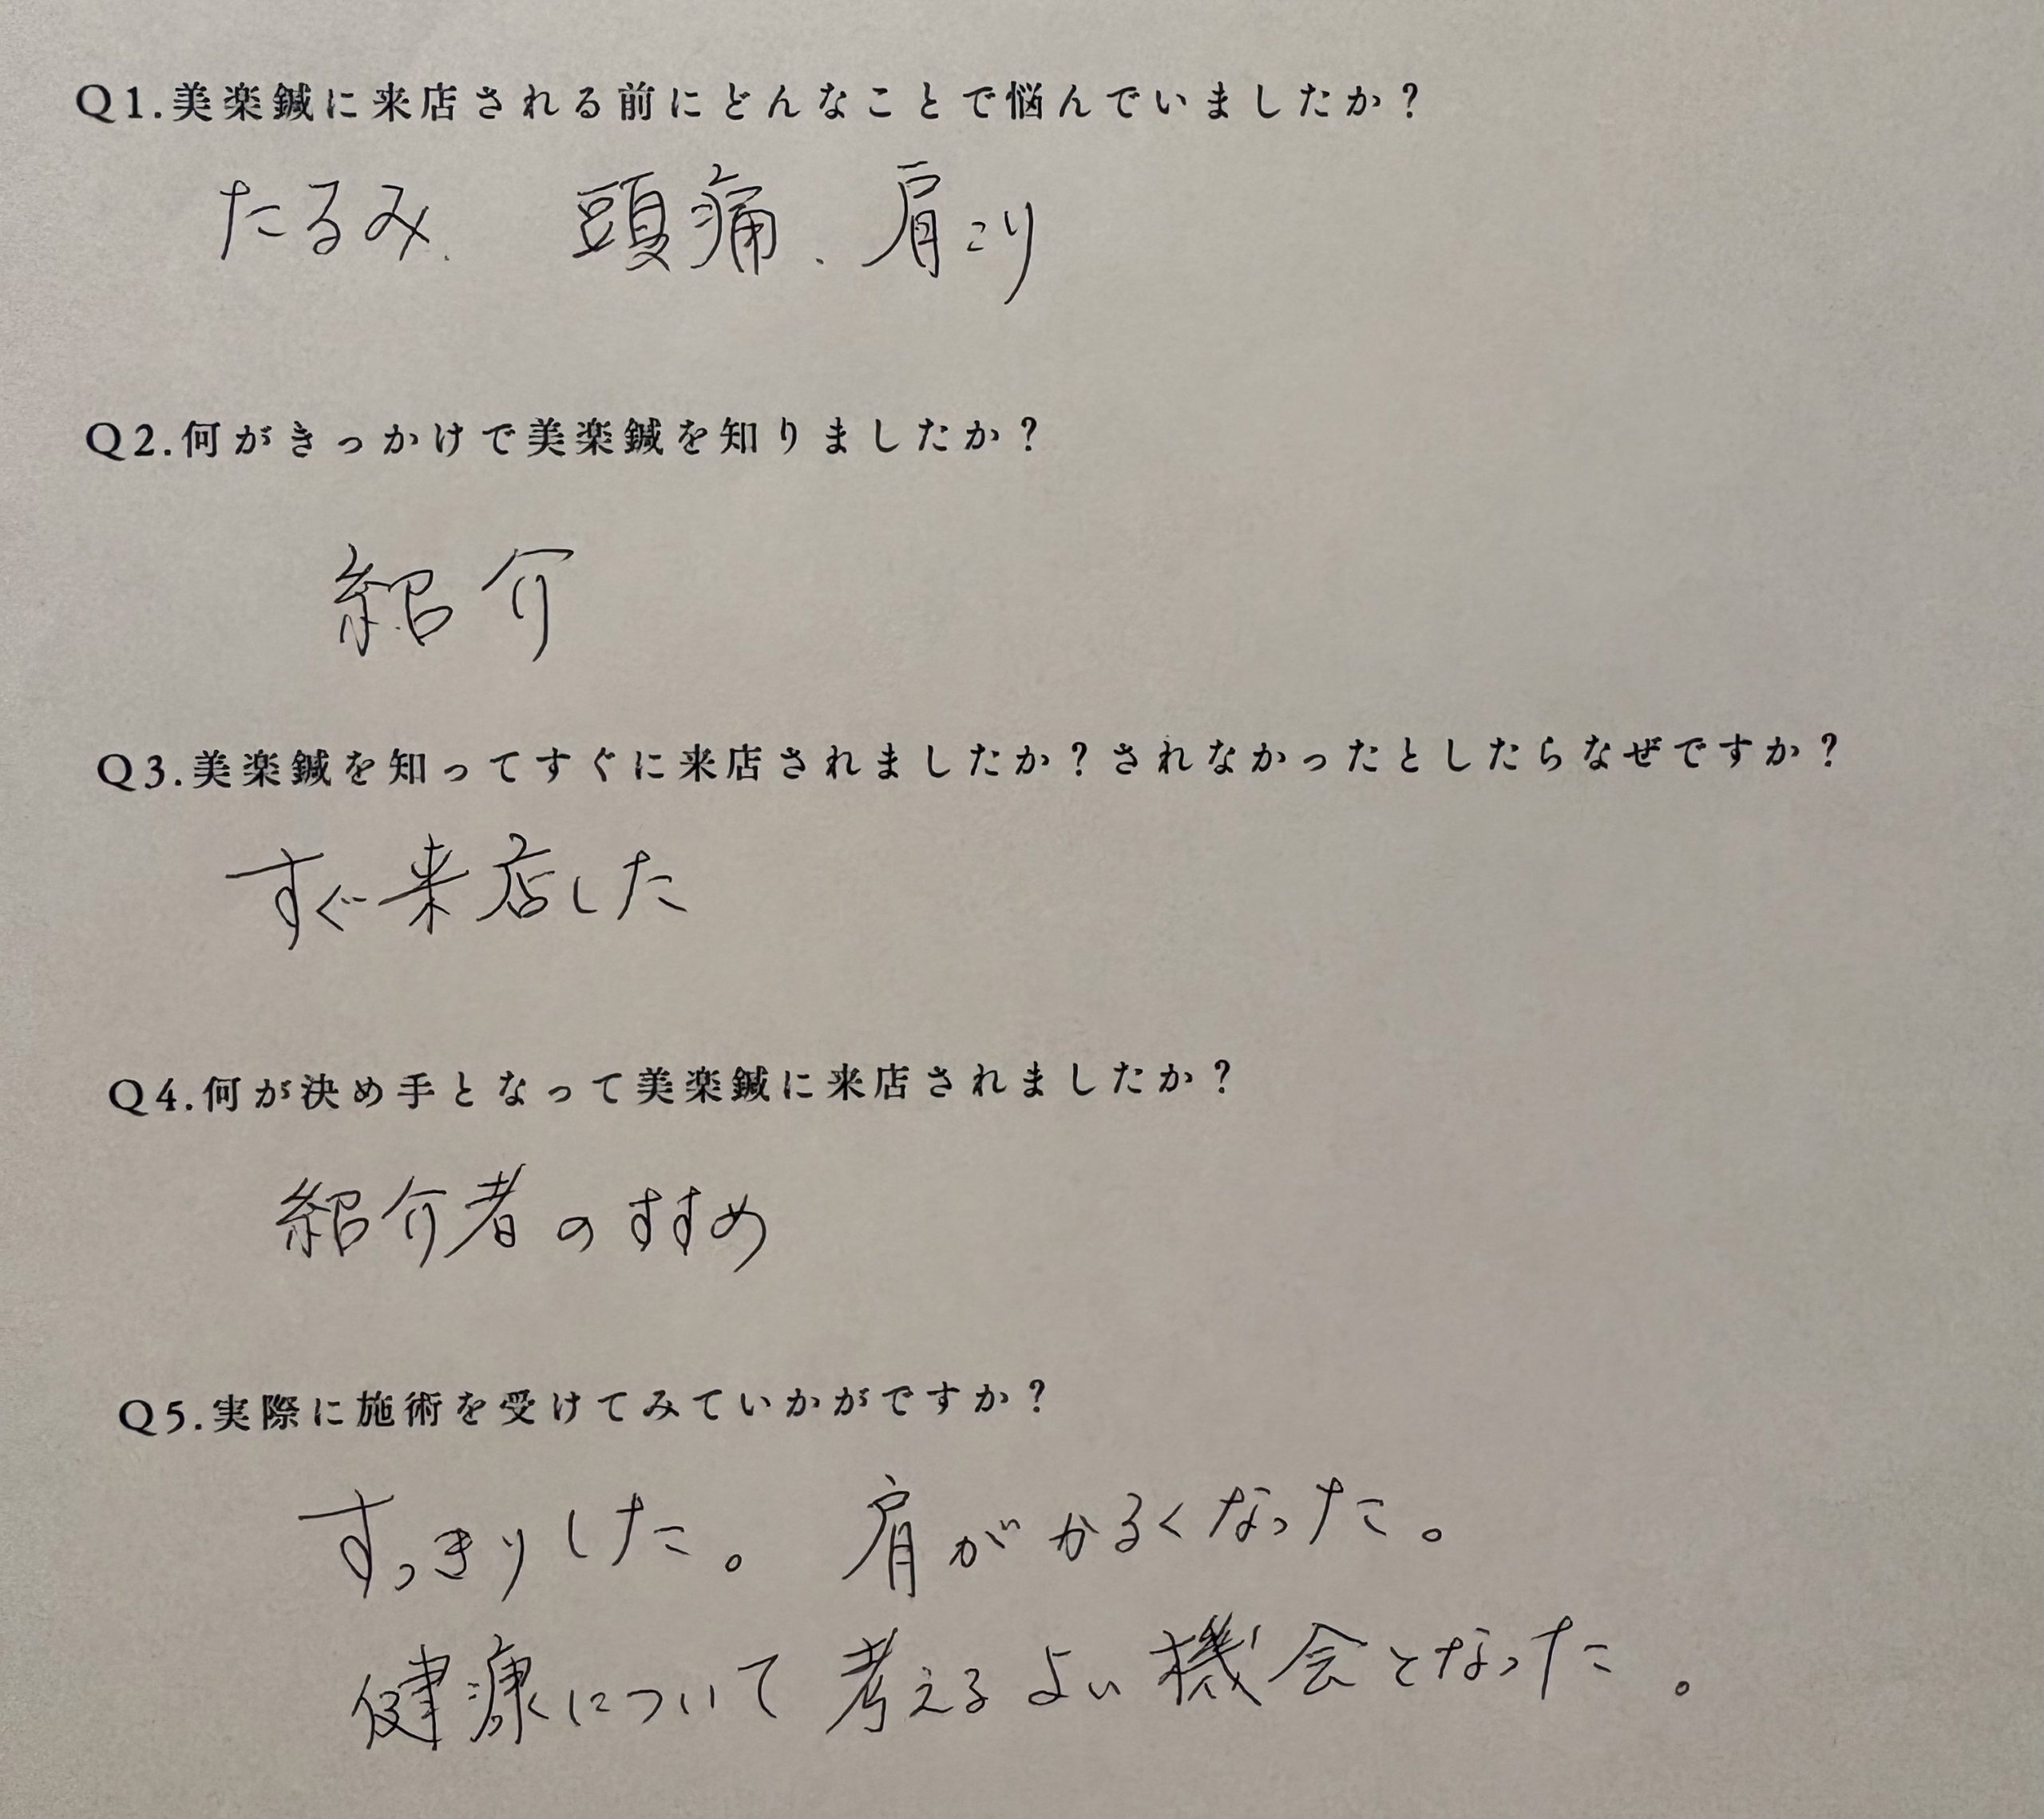 Q1.美楽鍼に来店される前にどんなことで悩んでいましたか？
たるみ、 頭痛、肩こり
Q2.何がきっかけで美楽鍼を知りましたか？
紹介
Q3.美楽鍼を知ってすぐに来店されましたか？されなかったとしたらなぜですか？
すぐ来店した
Q4.何が決め手となって美楽鍼に来店されましたか？
紹介者のすすめ
Q5.実際に施術を受けてみていかがですか？
すっきりした。 肩がかるくなった。
健康について考えるよい機会となった。